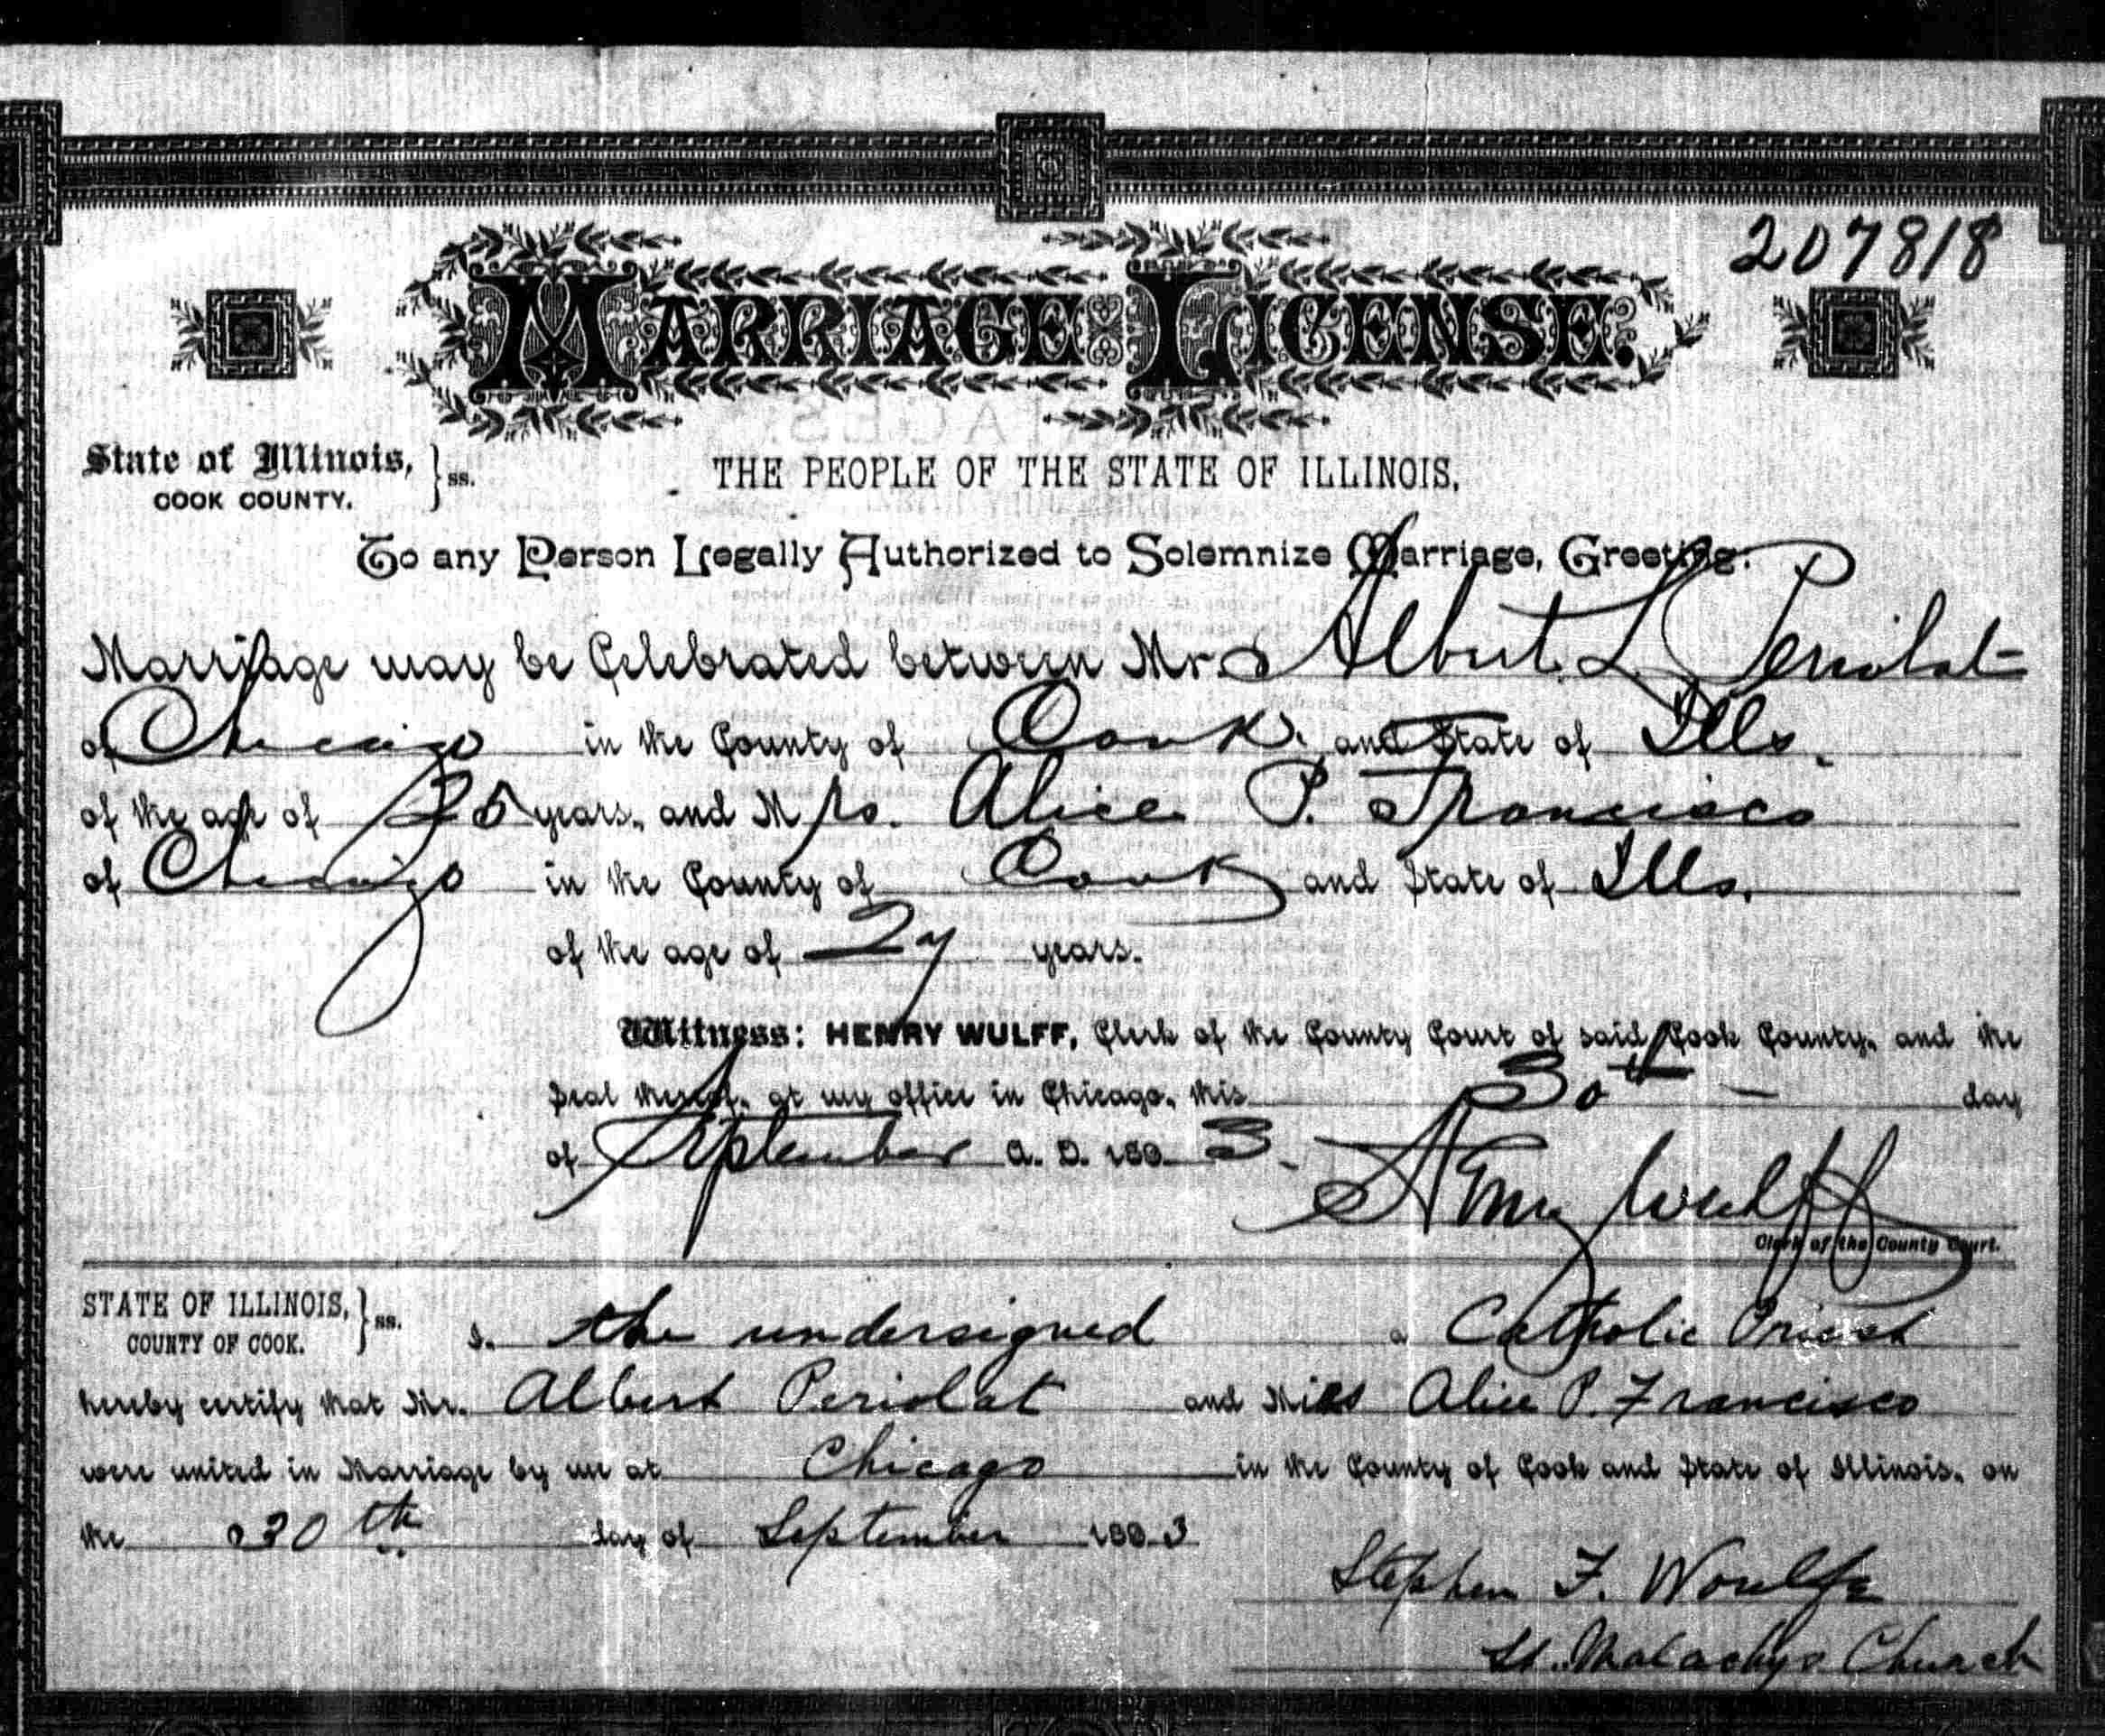 207818
MARRIAGE LICENSE.
State of Illinois, } ss.
COOK COUNTY.
THE PEOPLE OF THE STATE OF ILLINOIS,
To any Person Legally Authorized to Solemnize Marriage, Greeting:
Marriage may be Celebrated between Mr. Albert L. Periolat
of Chicago in the County of Cook and State of Ills.
of the age of 35 years, and Mrs. Alice P. Francisco
of Chicago in the County of Cook and State of Ills.
of the age of 27 years.
Witness: HENRY WULFF, Clerk of the County Court of said Cook County, and the
Seal thereof, at my office in Chicago, this 30th day
of September A. D. 1893.
Henry Wulff
Clerk of the County Court.
STATE OF ILLINOIS, } ss.
COUNTY OF COOK.
I, the undersigned a Catholic Priest
hereby certify that Mr. Albert Periolat and Miss Alice P. Francisco
were united in Marriage by me at Chicago in the County of Cook and State of Illinois, on
the 30th day of September 1893
Stephen F. Woulfe
St. Malachys Church